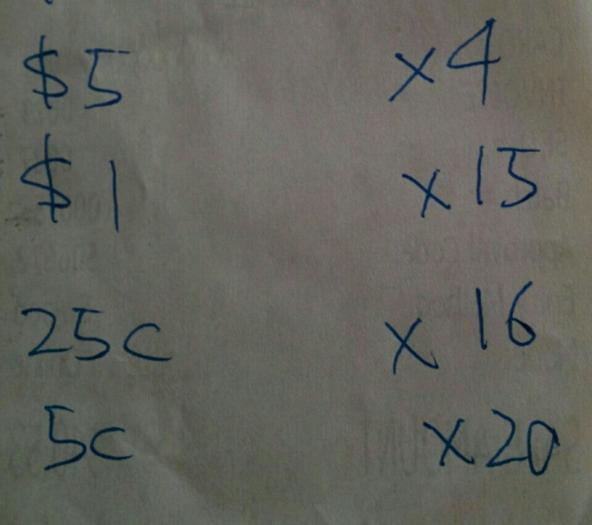 $5 x4
$1 x15
25c x 16
5c x20